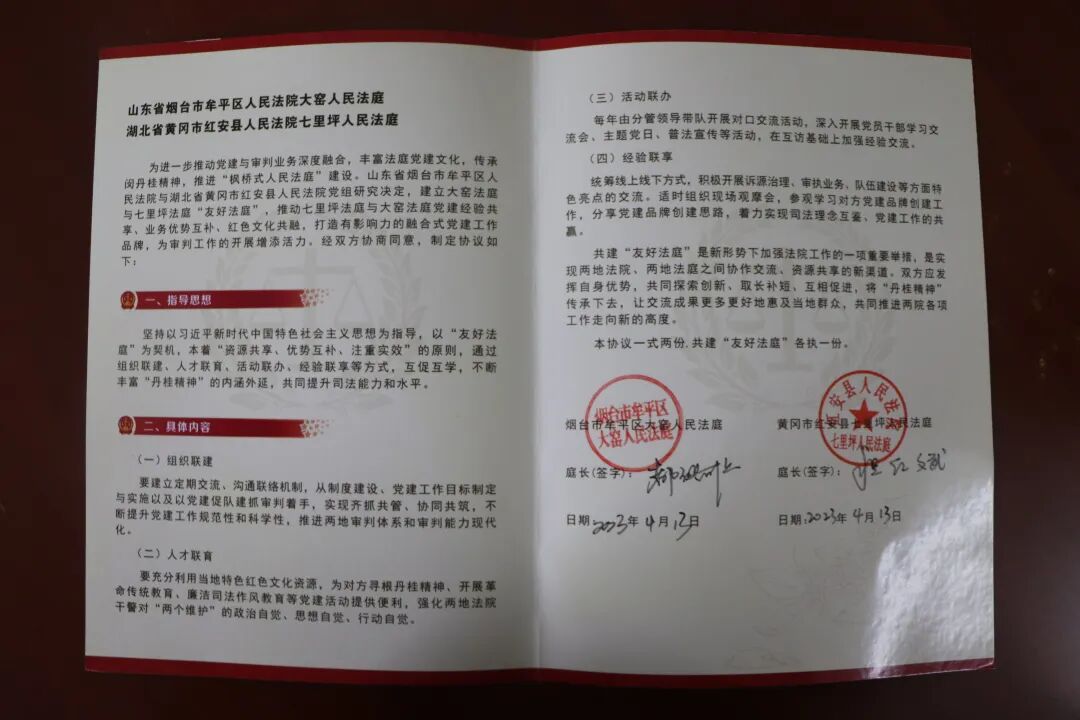 山东省烟台市牟平区人民法院大窑人民法庭
湖北省黄冈市红安县人民法院七里坪人民法庭
为进一步推动党建与审判业务深度融合，丰富法庭党建文化，传承
闵丹桂精神，推进“枫桥式人民法庭”建设。山东省烟台市牟平区人
民法院与湖北省黄冈市红安县人民法院党组研究决定，建立大窑法庭
与七里坪法庭“友好法庭”，推动七里坪法庭与大窑法庭党建经验共
享、业务优势互补、红色文化共融，打造有影响力的融合式党建工作
品牌，为审判工作的开展增添活力。经双方协商同意，制定协议如
下：
一、指导思想
坚持以习近平新时代中国特色社会主义思想为指导，以“友好法
庭”为契机，本着“资源共享、优势互补、注重实效”的原则，通过
组织联建、人才联育、活动联办、经验联享等方式，互促互学，不断
丰富“丹桂精神”的内涵外延，共同提升司法能力和水平。
二、具体内容
（一）组织联建
要建立定期交流、沟通联络机制，从制度建设、党建工作目标制定
与实施以及以党建促队建抓审判着手，实现齐抓共管、协同共筑，不
断提升党建工作规范性和科学性，推进两地审判体系和审判能力现代
化。
（二）人才联育
要充分利用当地特色红色文化资源，为对方寻根丹桂精神、开展革
命传统教育、廉洁司法作风教育等党建活动提供便利，强化两地法院
干警对“两个维护”的政治自觉、思想自觉、行动自觉。
（三）活动联办
每年由分管领导带队开展对口交流活动，深入开展党员干部学习交
流会、主题党日、普法宣传等活动，在互访基础上加强经验交流。
（四）经验联享
统筹线上线下方式，积极开展诉源治理、审执业务、队伍建设等方面特
色亮点的交流。适时组织现场观摩会，参观学习对方党建品牌创建工
作，分享党建品牌创建思路，着力实现司法理念互鉴、党建工作的共
赢。
共建“友好法庭”是新形势下加强法院工作的一项重要举措，是实
现两地法院、两地法庭之间协作交流、资源共享的新渠道。双方应发
挥自身优势，共同探索创新、取长补短、互相促进，将“丹桂精神”
传承下去，让交流成果更多更好地惠及当地群众，共同推进两院各项
工作走向新的高度。
本协议一式两份，共建“友好法庭”各执一份。
烟台市牟平区
大窑人民法庭
烟台市牟平区大窑人民法庭
庭长(签字)：
日期：2023年4月13日
红安县人民法院
七里坪人民法庭
黄冈市红安县七里坪人民法庭
庭长(签字)：
日期：2023年4月13日